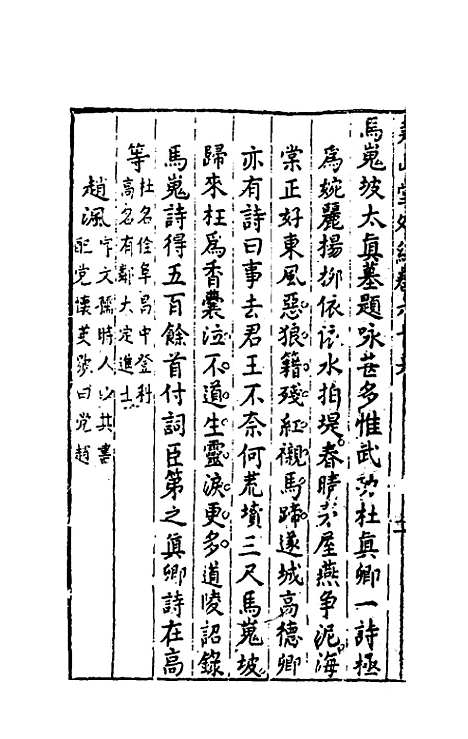 馬嵬坡太真墓題咏甚多惟武功杜真卿一詩極
爲婉麗楊柳依依水拍堤春晴茅屋燕争泥海
棠正好東風惡狼籍殘紅襯馬蹄遂城高德卿
亦有詩曰事去君王不奈何荒墳三尺馬嵬坡
歸來枉爲香囊泣不道生靈淚更多道陵詔錄
馬嵬詩得五百餘首付詞臣第之眞卿詩在高
等
杜名佺阜昌中登科
高名有鄰大定進士
趙渢
字文孺時人以其書
配党懷英號曰党趙